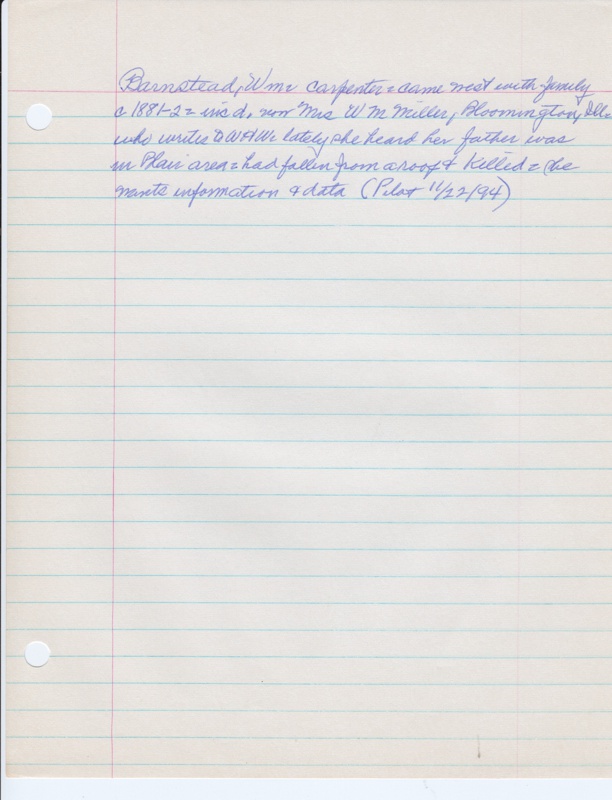 Barnstead, Wm = carpenter = came west with family
c 1881-2 = d, now Mrs W M Miller, Bloomington, Ills
who writes lately she heard her father was
in Blair area = had fallen from a roof & killed = she
wants information & data (Pilot 11/22/94)